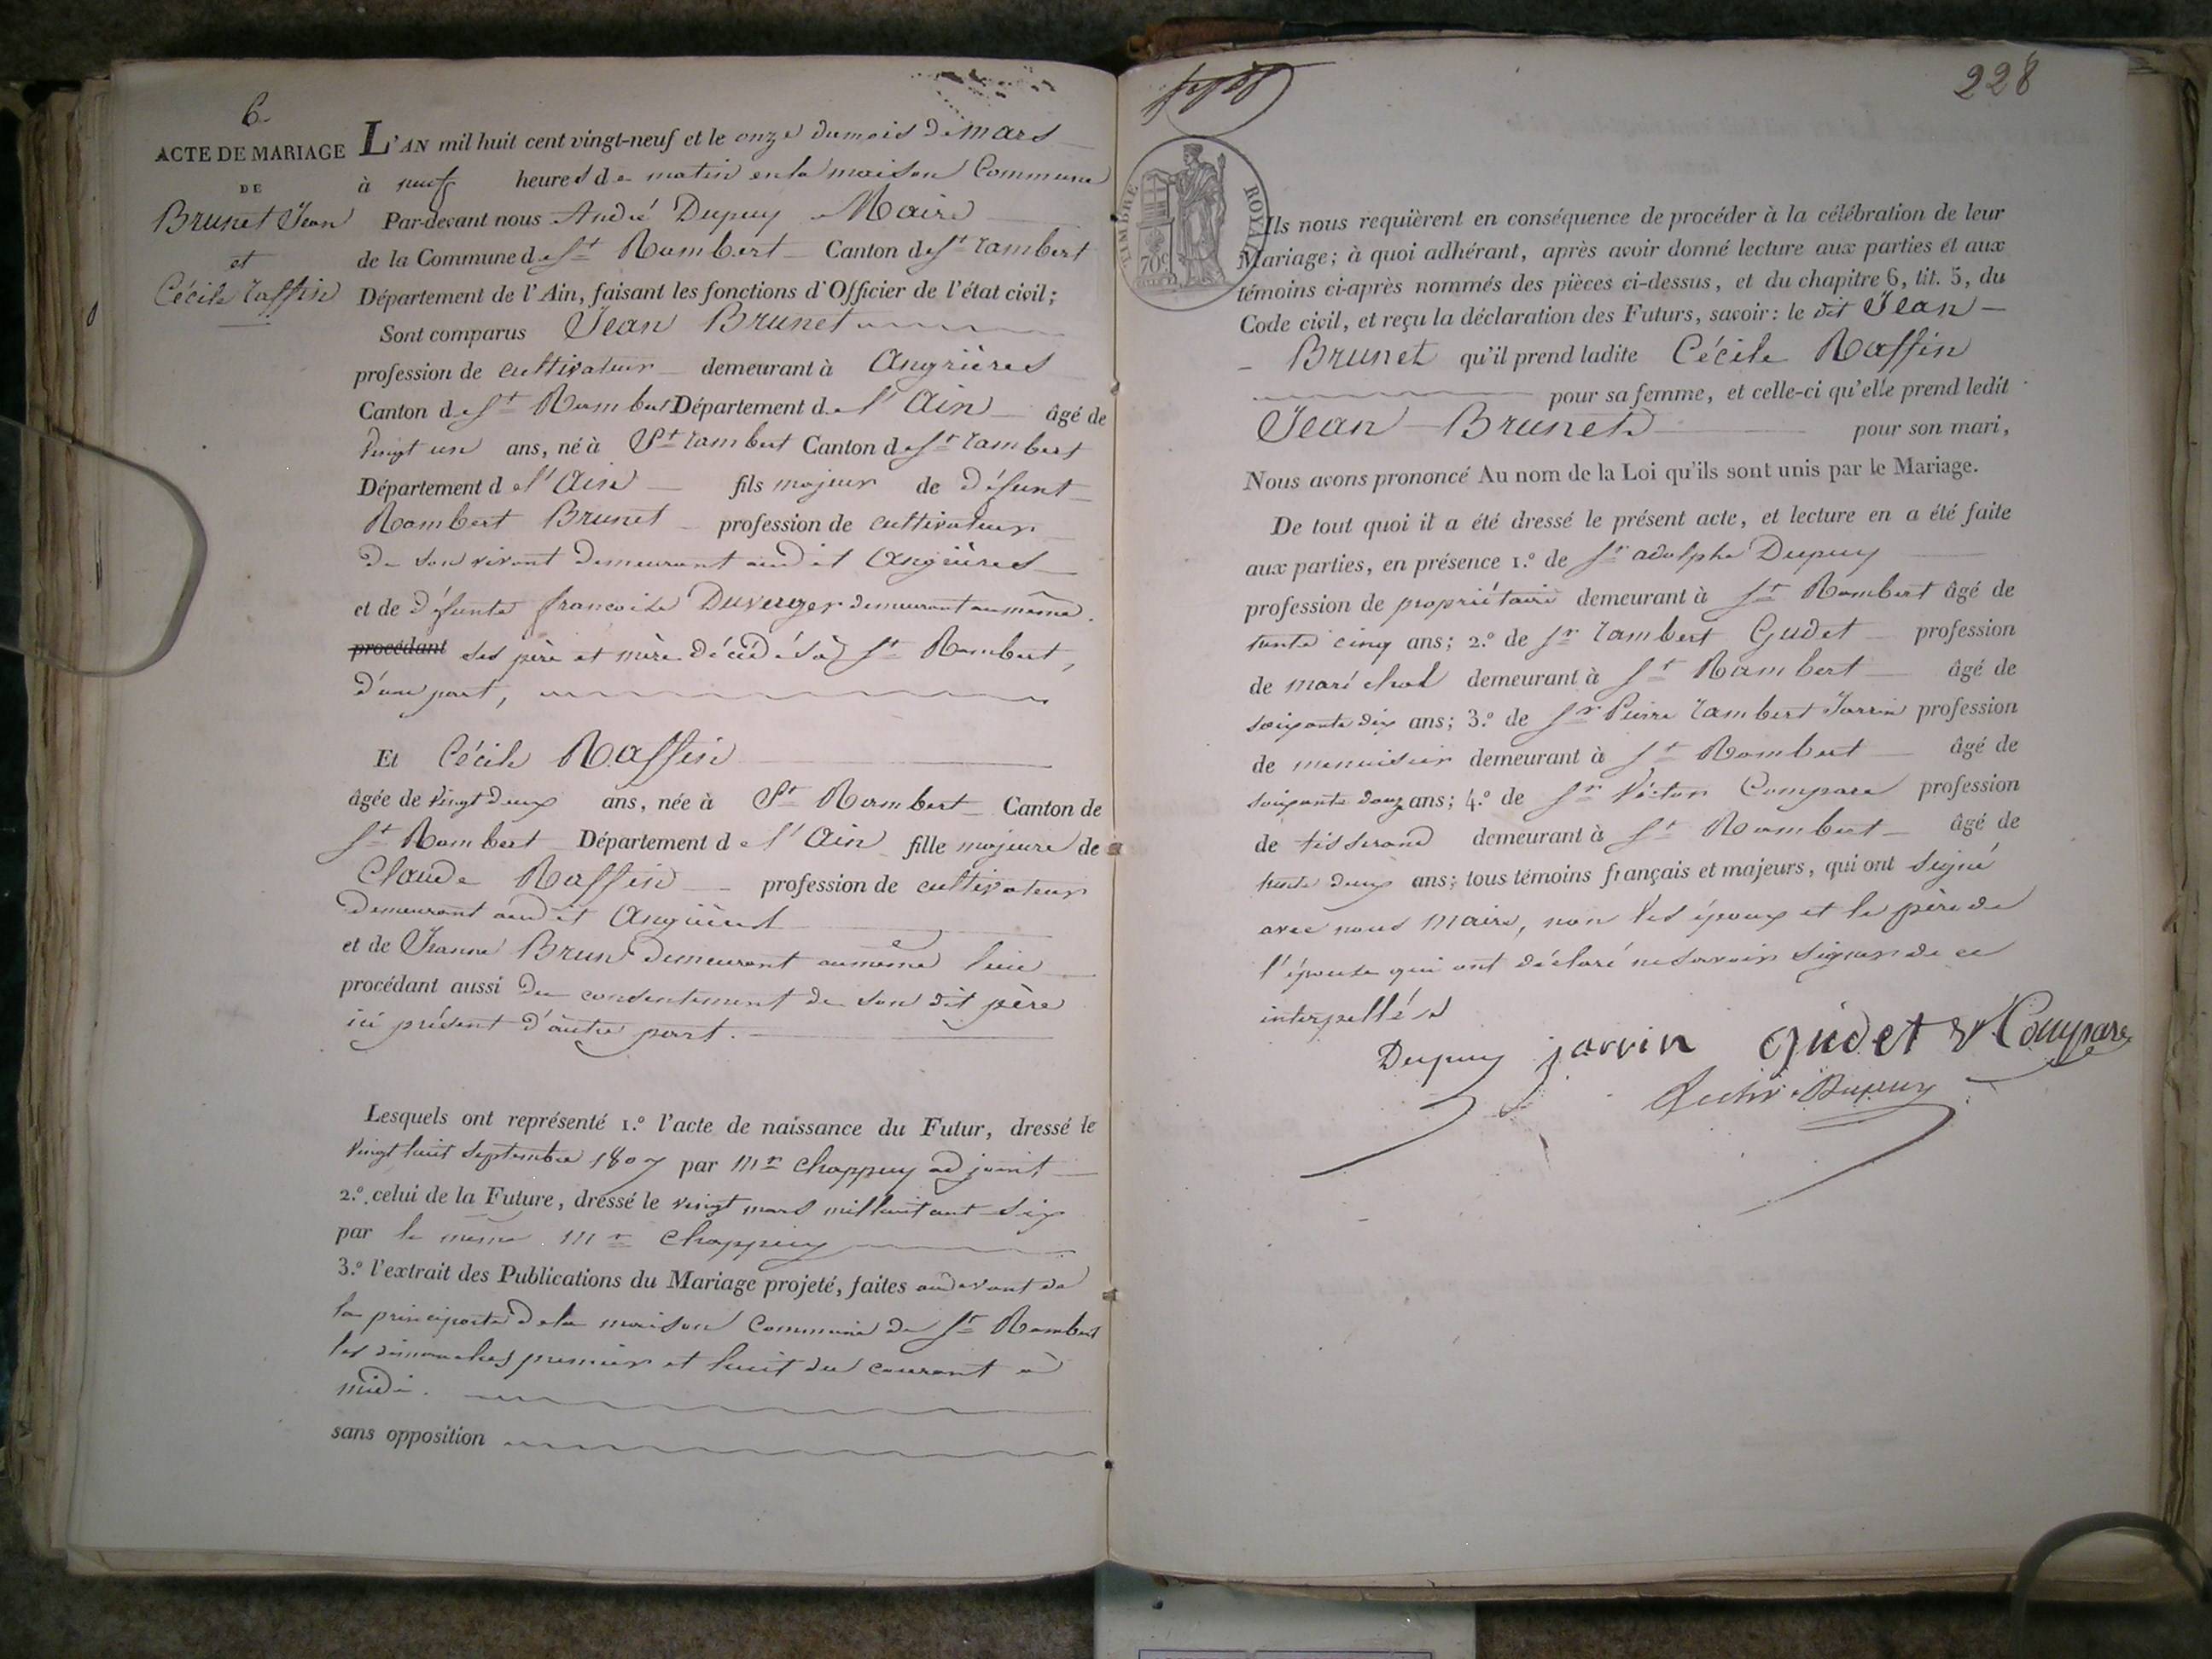 6.
ACTE DE MARIAGE
DE
Brunet Jean
et
Cécile Raffin
L'AN mil huit cent vingt-neuf et le onze du mois de mars
à neuf heures de matin en la maison Commune
Par-devant nous André Dupuy Maire
de la Commune de St Rambert Canton de St rambert
Département de l'Ain, faisant les fonctions d'Officier de l'état civil;
Sont comparus Jean Brunet
profession de cultivateur demeurant à Angrières
Canton de St Rambert Département de l'Ain âgé de
vingt un ans, né à St rambert Canton de St rambert
Département de l'Ain fils majeur de défunt
Rambert Brunet profession de cultivateur
de son vivant demeurant audit Angrières
et de défunte francoise Duverger demeurant au même
procédant ses père et mère décédés à St Rambert,
d'une part,
Et Cécile Raffin
âgée de vingt deux ans, née à St Rambert Canton de
St Rambert Département de l'Ain fille majeure de
Claude Raffin profession de cultivateur
demeurant audit Angrières
et de Jeanne Brun demeurant au même lieu
procédant aussi du consentement de son dit père
ici présent d'autre part.
Lesquels ont représenté 1.º l'acte de naissance du Futur, dressé le
vingt huit septembre 1807 par Mr Chappuy adjoint
2.º celui de la Future, dressé le vingt mars mil huit cent six
par le même Mr Chappuy
3.º l'extrait des Publications du Mariage projeté, faites audevant de
la principale de la maison Commune de St Rambert
les dimanches premier et huit du courant à
midi.
sans opposition
228
TIMBRE ROYAL
70c
Ils nous requièrent en conséquence de procéder à la célébration de leur
Mariage; à quoi adhérant, après avoir donné lecture aux parties et aux
témoins ci-après nommés des pièces ci-dessus, et du chapitre 6, tit. 5, du
Code civil, et reçu la déclaration des Futurs, savoir: le dit Jean
Brunet qu'il prend ladite Cécile Raffin
pour sa femme, et celle-ci qu'elle prend ledit
Jean Brunet pour son mari,
Nous avons prononcé Au nom de la Loi qu'ils sont unis par le Mariage.
De tout quoi il a été dressé le présent acte, et lecture en a été faite
aux parties, en présence 1.º de Sr adolphe Dupuy
profession de propriétaire demeurant à St Rambert âgé de
trente cinq ans; 2.º de Sr rambert Gudet profession
de maréchal demeurant à St Rambert âgé de
soixante dix ans; 3.º de Sr Pierre rambert Jarrin profession
de menuisier demeurant à St Rambert âgé de
soixante douze ans; 4.º de Sr Victor Compare profession
de tisserand demeurant à St Rambert âgé de
trente deux ans; tous témoins français et majeurs, qui ont signé
avec nous maire, non les époux et le père de
l'épouse qui ont déclaré ne savoir signer de ce
interpellés
Dupuy jarrin gudet Compare
Dupuy